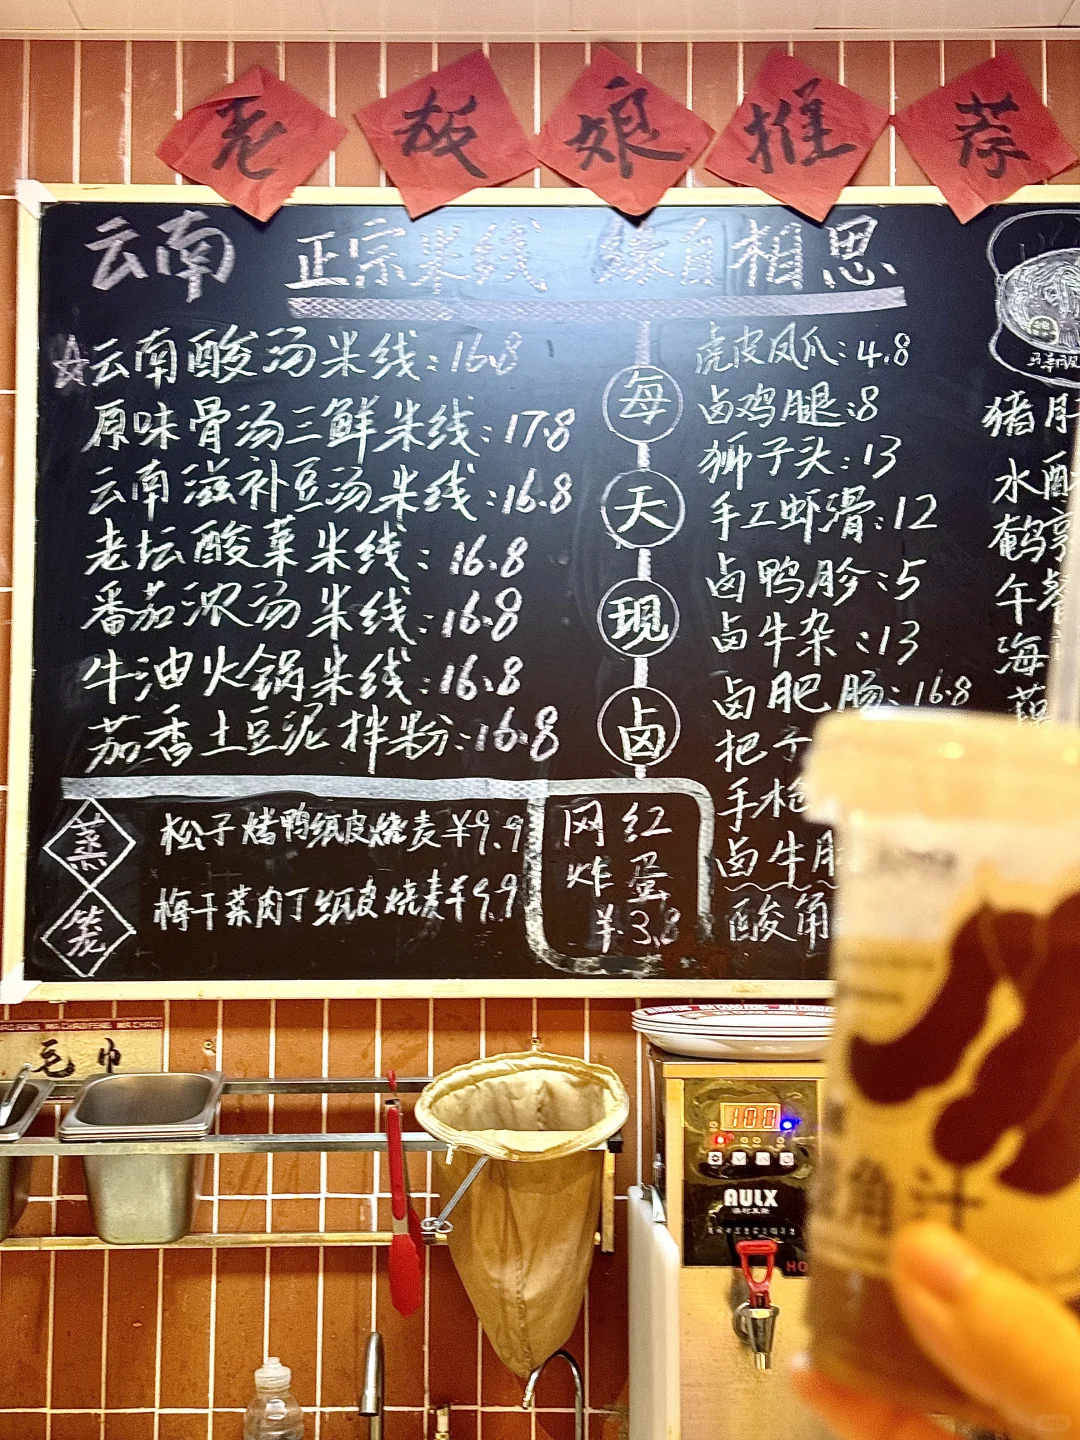 老板娘推荐
云南 正宗米线 缘自相思
☆云南酸汤米线:16.8
原味骨汤三鲜米线:17.8
云南滋补豆汤米线:16.8
老坛酸菜米线:16.8
番茄浓汤米线:16.8
牛油火锅米线:16.8
茄香土豆泥拌粉:16.8
每天现卤
虎皮凤爪:4.8
卤鸡腿:8
狮子头:13
手工虾滑:12
卤鸭胗:5
卤牛杂:13
卤肥肠:16.8
把子
手枪
卤牛
酸角
猪肝
水
鹌
午餐
海
蒸笼
松子烤鸭纸皮烧麦¥9.9
梅干菜肉丁纸皮烧麦¥9.9
网红
炸蛋
¥3.8
毛巾
100
AULX
HO
角汁